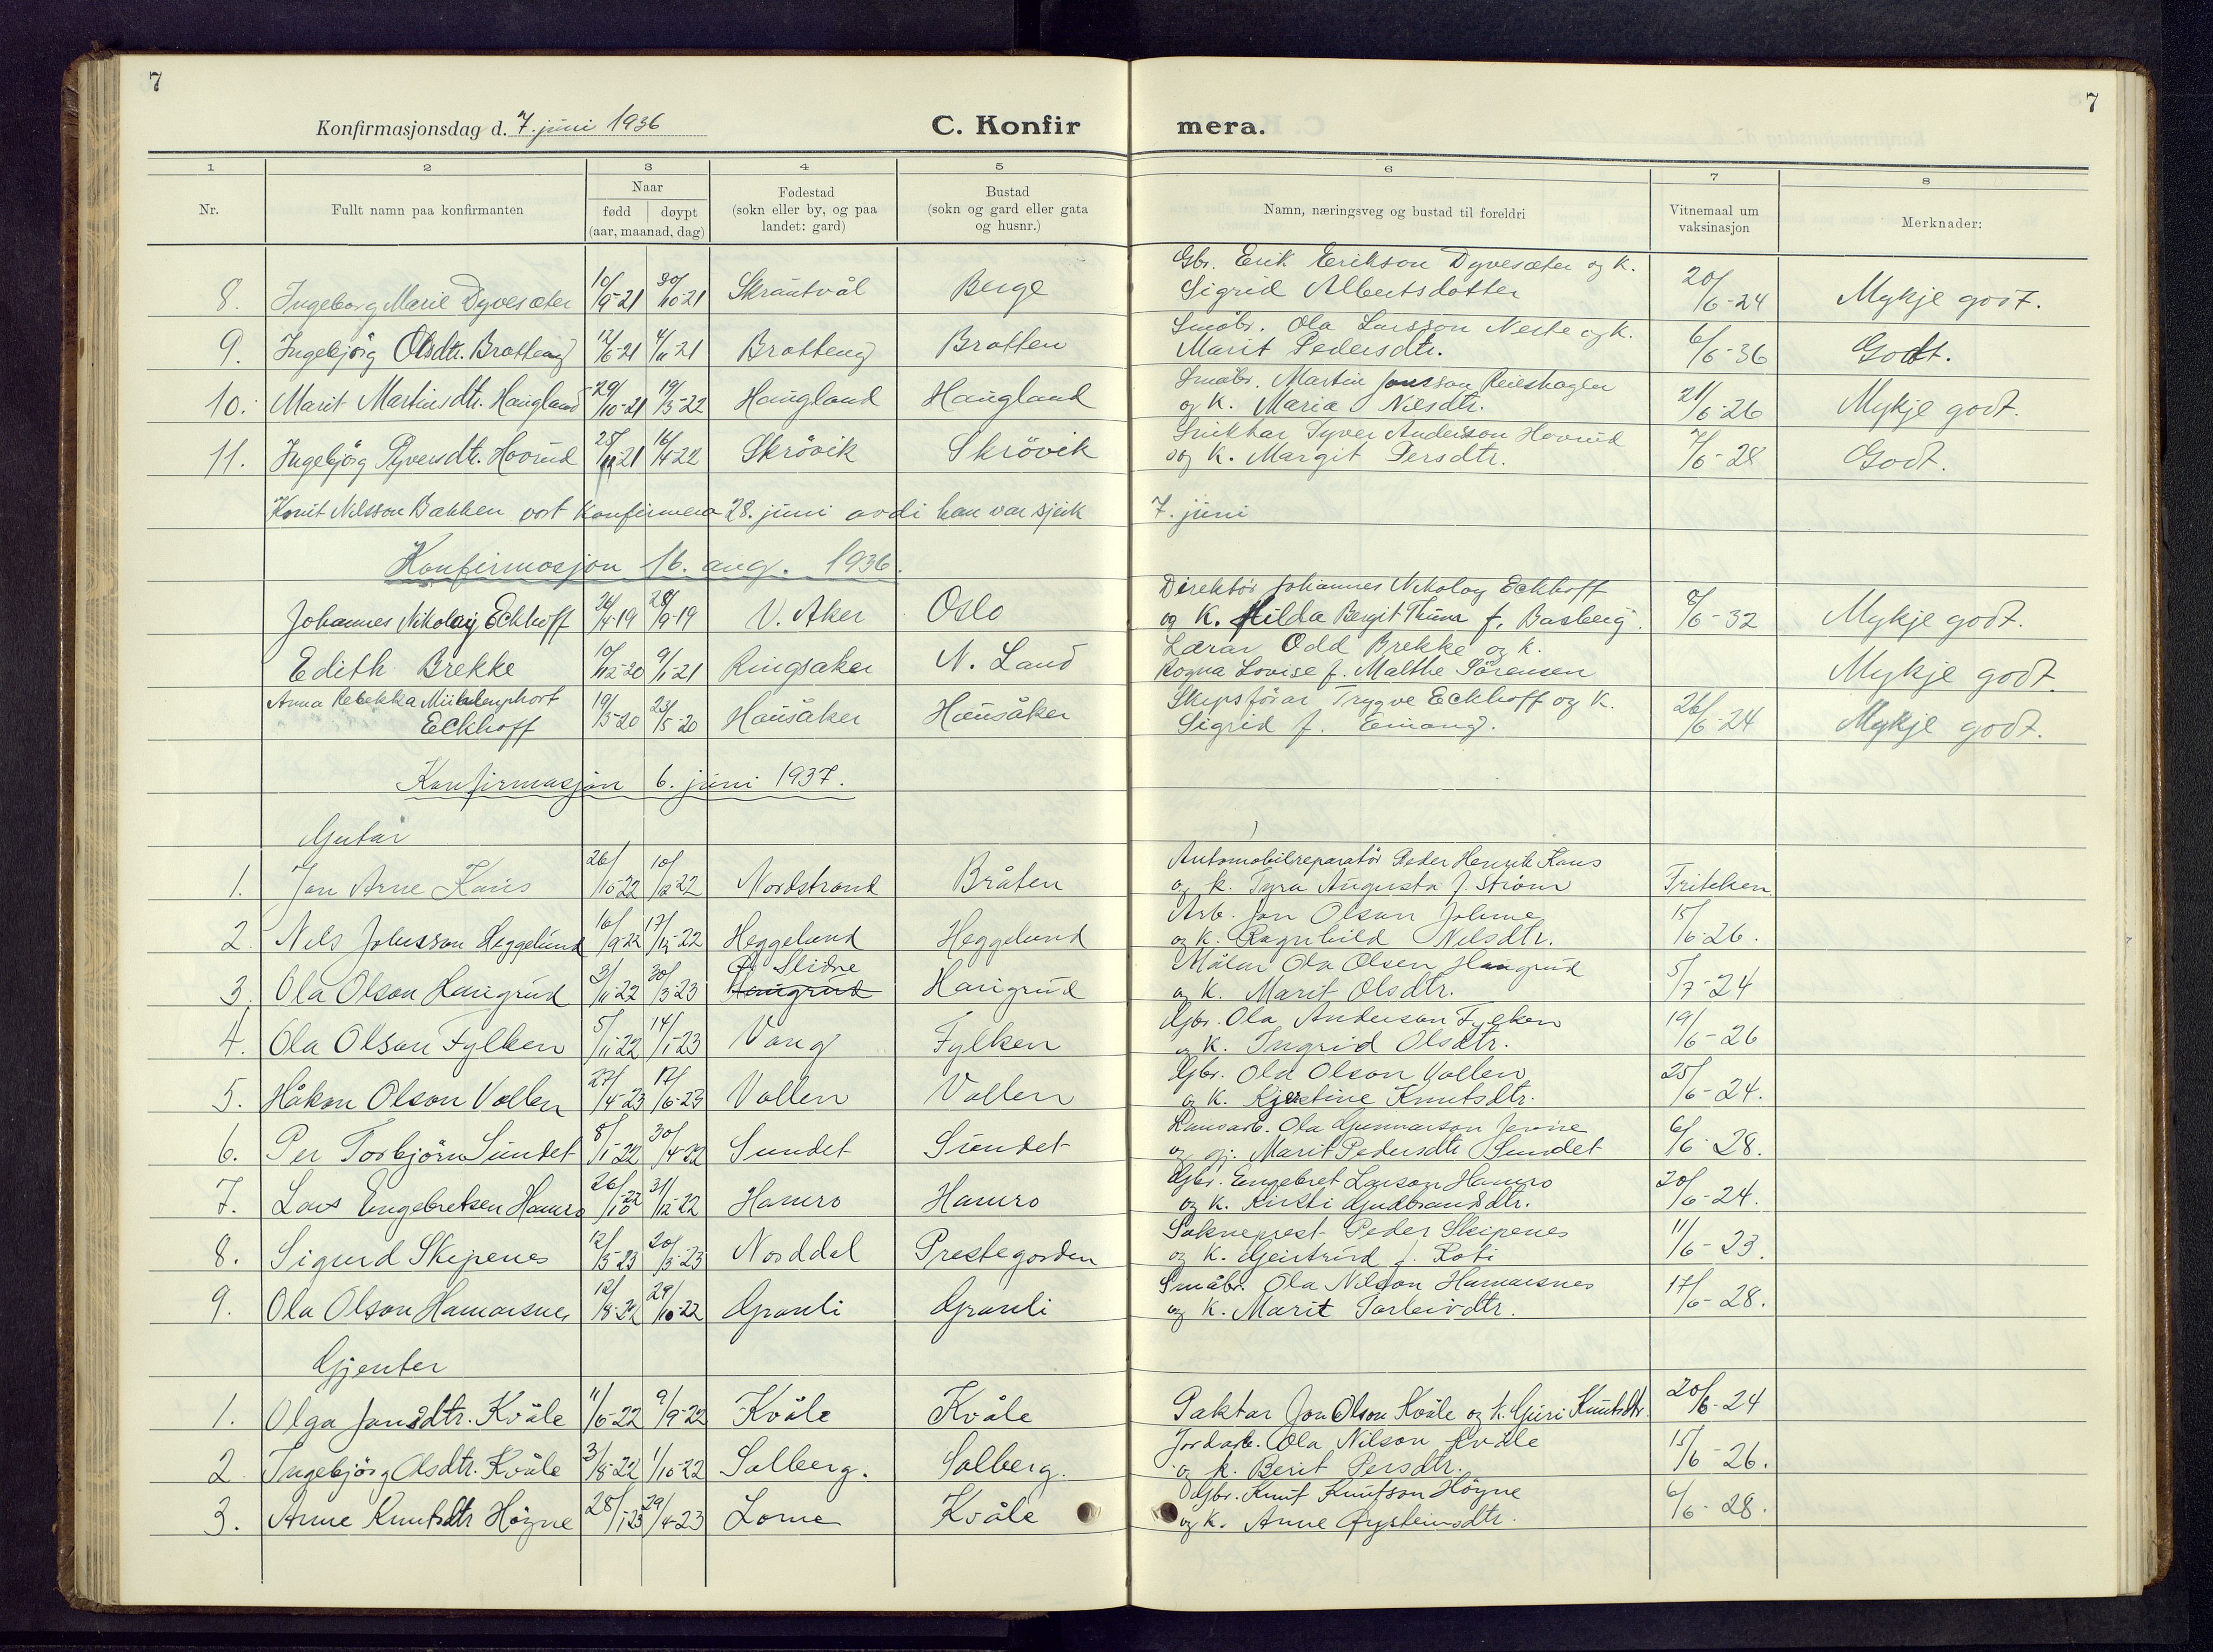 7
7
Konfirmasjonsdag d. 7. juni 1936
C. Konfir mera.
1 2 3 4 5 6 7 8
Nr.
Fullt namn paa konfirmanten
Naar
fødd døypt
(aar, maanad, dag)
Fødestad
(sokn eller by, og paa
landet: gard)
Bustad
(sokn og gard eller gata
og husnr.)
Namn, næringsveg og bustad til foreldri
Vitnemaal um
vaksinasjon
Merknader:
Gbr. Erik Erikson Dyvesæter og k.
8. Ingeborg Marie Dyvesæter 10/9-21 30/10-21 Skrautvål Berge Sigrid Albertsdotter 20/6-24 Mykje godt.
Småbr. Ola Larsson Neste og k.
9. Ingebjörg Olsdtr. Brotteng 12/6-21 4/11-21 Brotteng Brotten Marit Pedersdtr. 6/6-36 Godt.
Småbr. Martin Jonsson
10. Marit Martinsdtr. Haugland 29/10-21 19/3-22 Haugland Haugland og K. Maria Nilsdtr. 21/6-26 Mykje godt.
Tyver Anderson Hovrud
11. Ingebjörg Tyversdtr. Hovrud 25/11-21 16/4-22 Skrövik Skrövik og K. Margit Persdtr. 7/6-28 Godt.
Knut Nilsson Bakken vort konfirmera 28. juni avdi han var sjuk 7. juni
Konfirmasjon 16. aug. 1936.
Direktör Johannes Nikolay Eckhoff
Johannes Nikolay Eckhoff 26/4-19 28/9-19 V. Aker Oslo og K. Hilda Bergit Thina f. Basberg. 9/6-32 Mykje godt.
Lærar Odd Brekke og k.
Edith Brekke 10/12-20 9/1-21 Ringsaker N. Land Rogna Lovise f. Malthe Sörensen Mykje godt.
Anna Rebekka
Skipsförar Trygve Eckhoff og K.
Eckhoff 19/3-20 23/5-20 Hausåker Hausåker Sigrid f. Emang. 26/6-24 Mykje godt.
Konfirmasjon 6. juni 1937.
Gutar
Automobilreparatör Peder Henrik Kaus
1. Jan Arne Kaus 26/10-22 10/12-22 Nordstrand Bråten og k. Tyra Augusta f. Ström Fritiken
Arb. Jon Olson Johme
2. Nils Johnsson Heggelund 16/9-22 17/12-22 Heggelund Heggelund og K. Ragnhild Nilsdtr. 15/6-26.
Ö. Slidre
Målar Ola Olsen Haugrud
3. Ola Olson Haugrud 3/11-22 30/3-23 Haugrud Haugrud og K. Marit Olsdtr. 5/7-24
Gbr. Ola Anderson Fylken
4. Ola Olson Fylken 5/11-22 14/1-23 Vang Fylken og K. Ingrid Olsdtr. 19/6-26
Gbr. Ola Olson Vollen
5. Håkon Olson Vollen 27/4-23 17/6-23 Vollen Vollen og K. Kjerstine Knutsdtr. 25/6-24.
Ola Gunnarson
6. Per Torbjörn Sundet 8/1-22 30/4-22 Sundet Sundet og gj. Marit Pedersdtr Sundet 6/6-28.
Gbr. Engebret Larson Hamro
7. Lars Engebretsen Hamro 26/10-22 31/12-22 Hamro Hamro og K. Kirsti Gudbrandsdtr. 20/6-24.
Sokneprest Peder Skipenes
8. Sigurd Skipenes 12/3-23 20/5-23 Norddal Prestegorden og K. Geirtrud f. Roti 11/6-23.
Småbr. Ola Nilson Hamarsnes
9. Ola Olson Hamarsnes 12/8-22 29/10-22 Granli Granli og K. Marit Torleivdtr. 17/6-28.
Gjenter
1. Olga Jonsdtr. Kvåle 11/6-22 9/9-22 Kvåle Kvåle Paktar Jon Olson Kvåle og k. Guri Knutsdtr. 20/6-24
Jordarb. Ola Nilson Kvåle
2. Ingebjörg Olsdtr. Kvåle 3/8-22 1/10-22 Solberg. Solberg. og k. Berit Persdtr. 15/6-26.
Gbr. Knut Knutson Höyne
3. Anne Knutsdtr Höyne 28/1-23 29/4-23 Lome Kvåle og K. Anne Öysteinsdtr. 6/6-28.